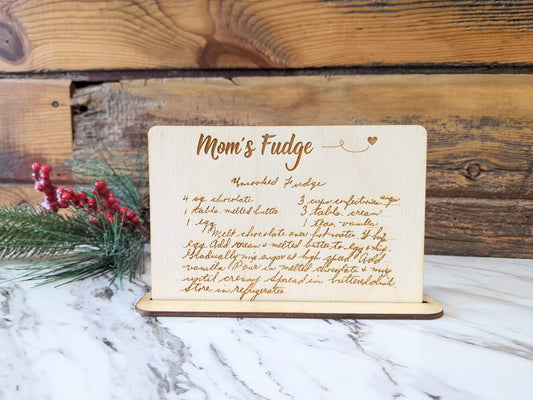 Mom's Fudge
Uncooked Fudge
4 sq chocolate 3 cups confectioners
1 table. melted butter 3 table. cream
1 egg 1 teas. vanilla
Melt chocolate over hot water. Whip
egg. Add cream & melted butter to egg & mix
Gradually mix sugar at high speed. Add
vanilla. Pour in melted chocolate & mix
until creamy. Spread in buttered dish
Store in refrigerator.